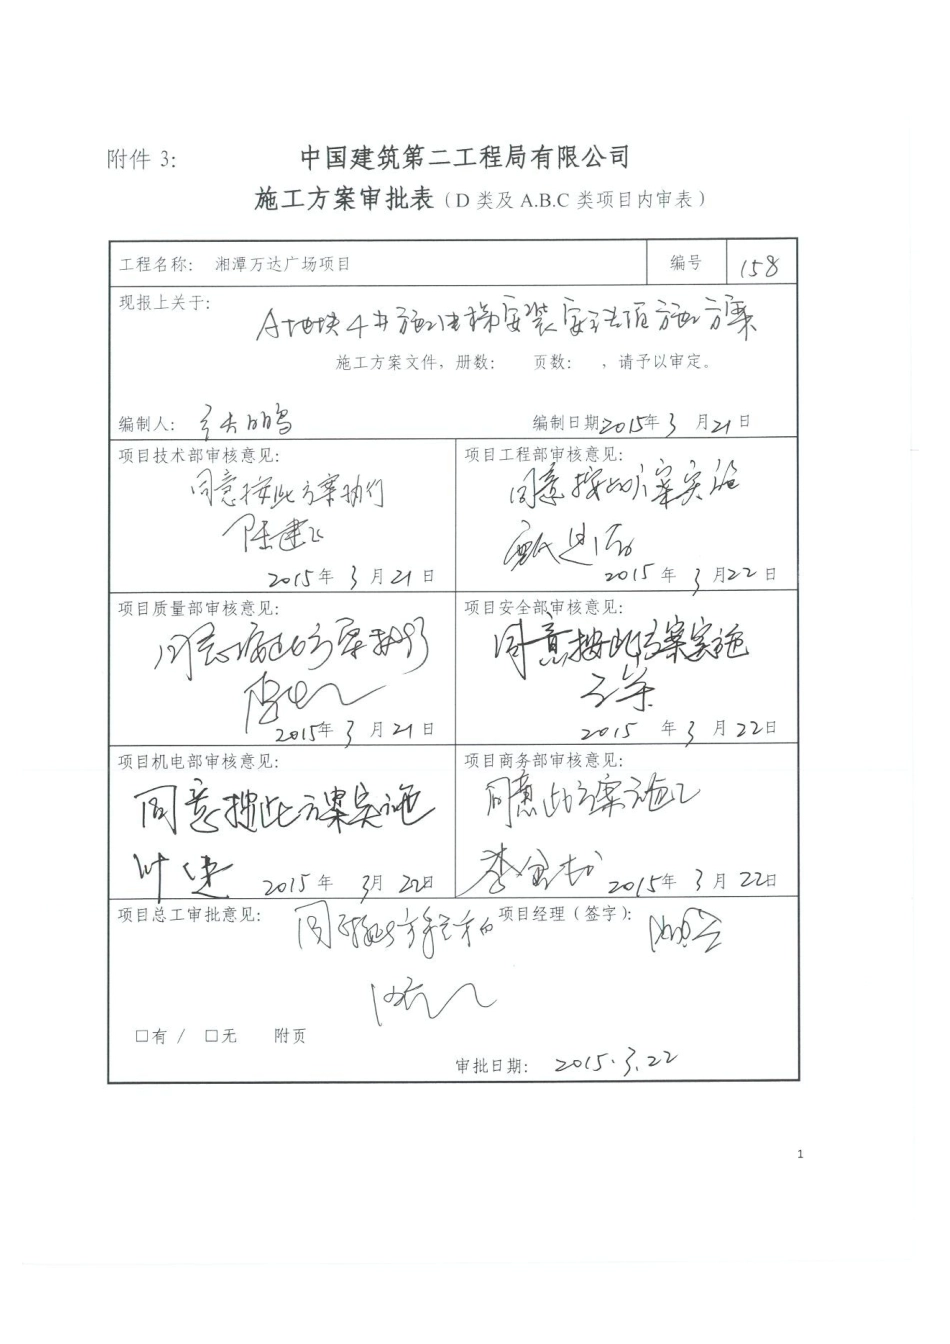 附件 3:
中国建筑第二工程局有限公司
施工方案审批表（D 类及 A.B.C 类项目内审表）
工程名称： 湘潭万达广场项目 编号 158
现报上关于：
A地块4#施工电梯安装 方案
施工方案文件，册数： 页数： ，请予以审定。
编制人：
编制日期2015年3月21日
项目技术部审核意见： 项目工程部审核意见：
同意按此方案执行 同意按此方案实施
陈建飞
2015年3月21日 2015年3月22日
项目质量部审核意见： 项目安全部审核意见：
同意按此方案执行 同意按此方案实施
2015年3月21日 2015年3月22日
项目机电部审核意见： 项目商务部审核意见：
同意按此方案实施 同意此方案施工
叶
2015年3月22日 2015年3月22日
项目总工审批意见： 项目经理（签字）：
同
□有 / □无 附页
审批日期： 2015.3.22
1